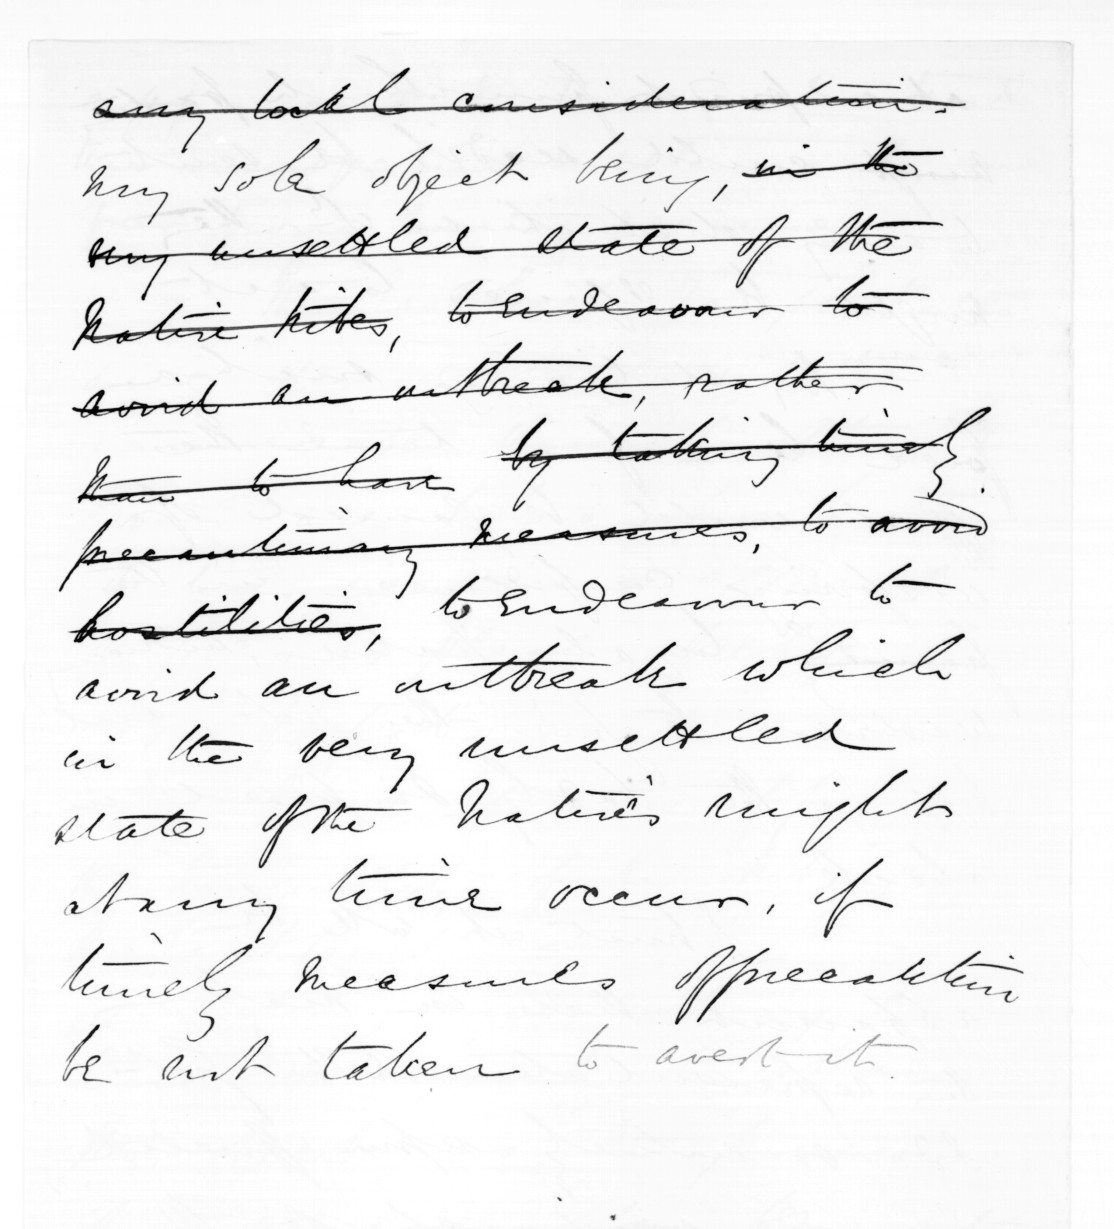 any local consideration.
my sole object being, in the
my unsettled state of the
Native tribes, to endeavour to
avoid an outbreak, rather
than to have by taking timely
precautionary measures, to avoid
hostilities, to endeavour to
avoid an outbreak which
in the very unsettled
state of the Natives might
at any time occur, if
timely measures of precaution
be not taken to avert it.